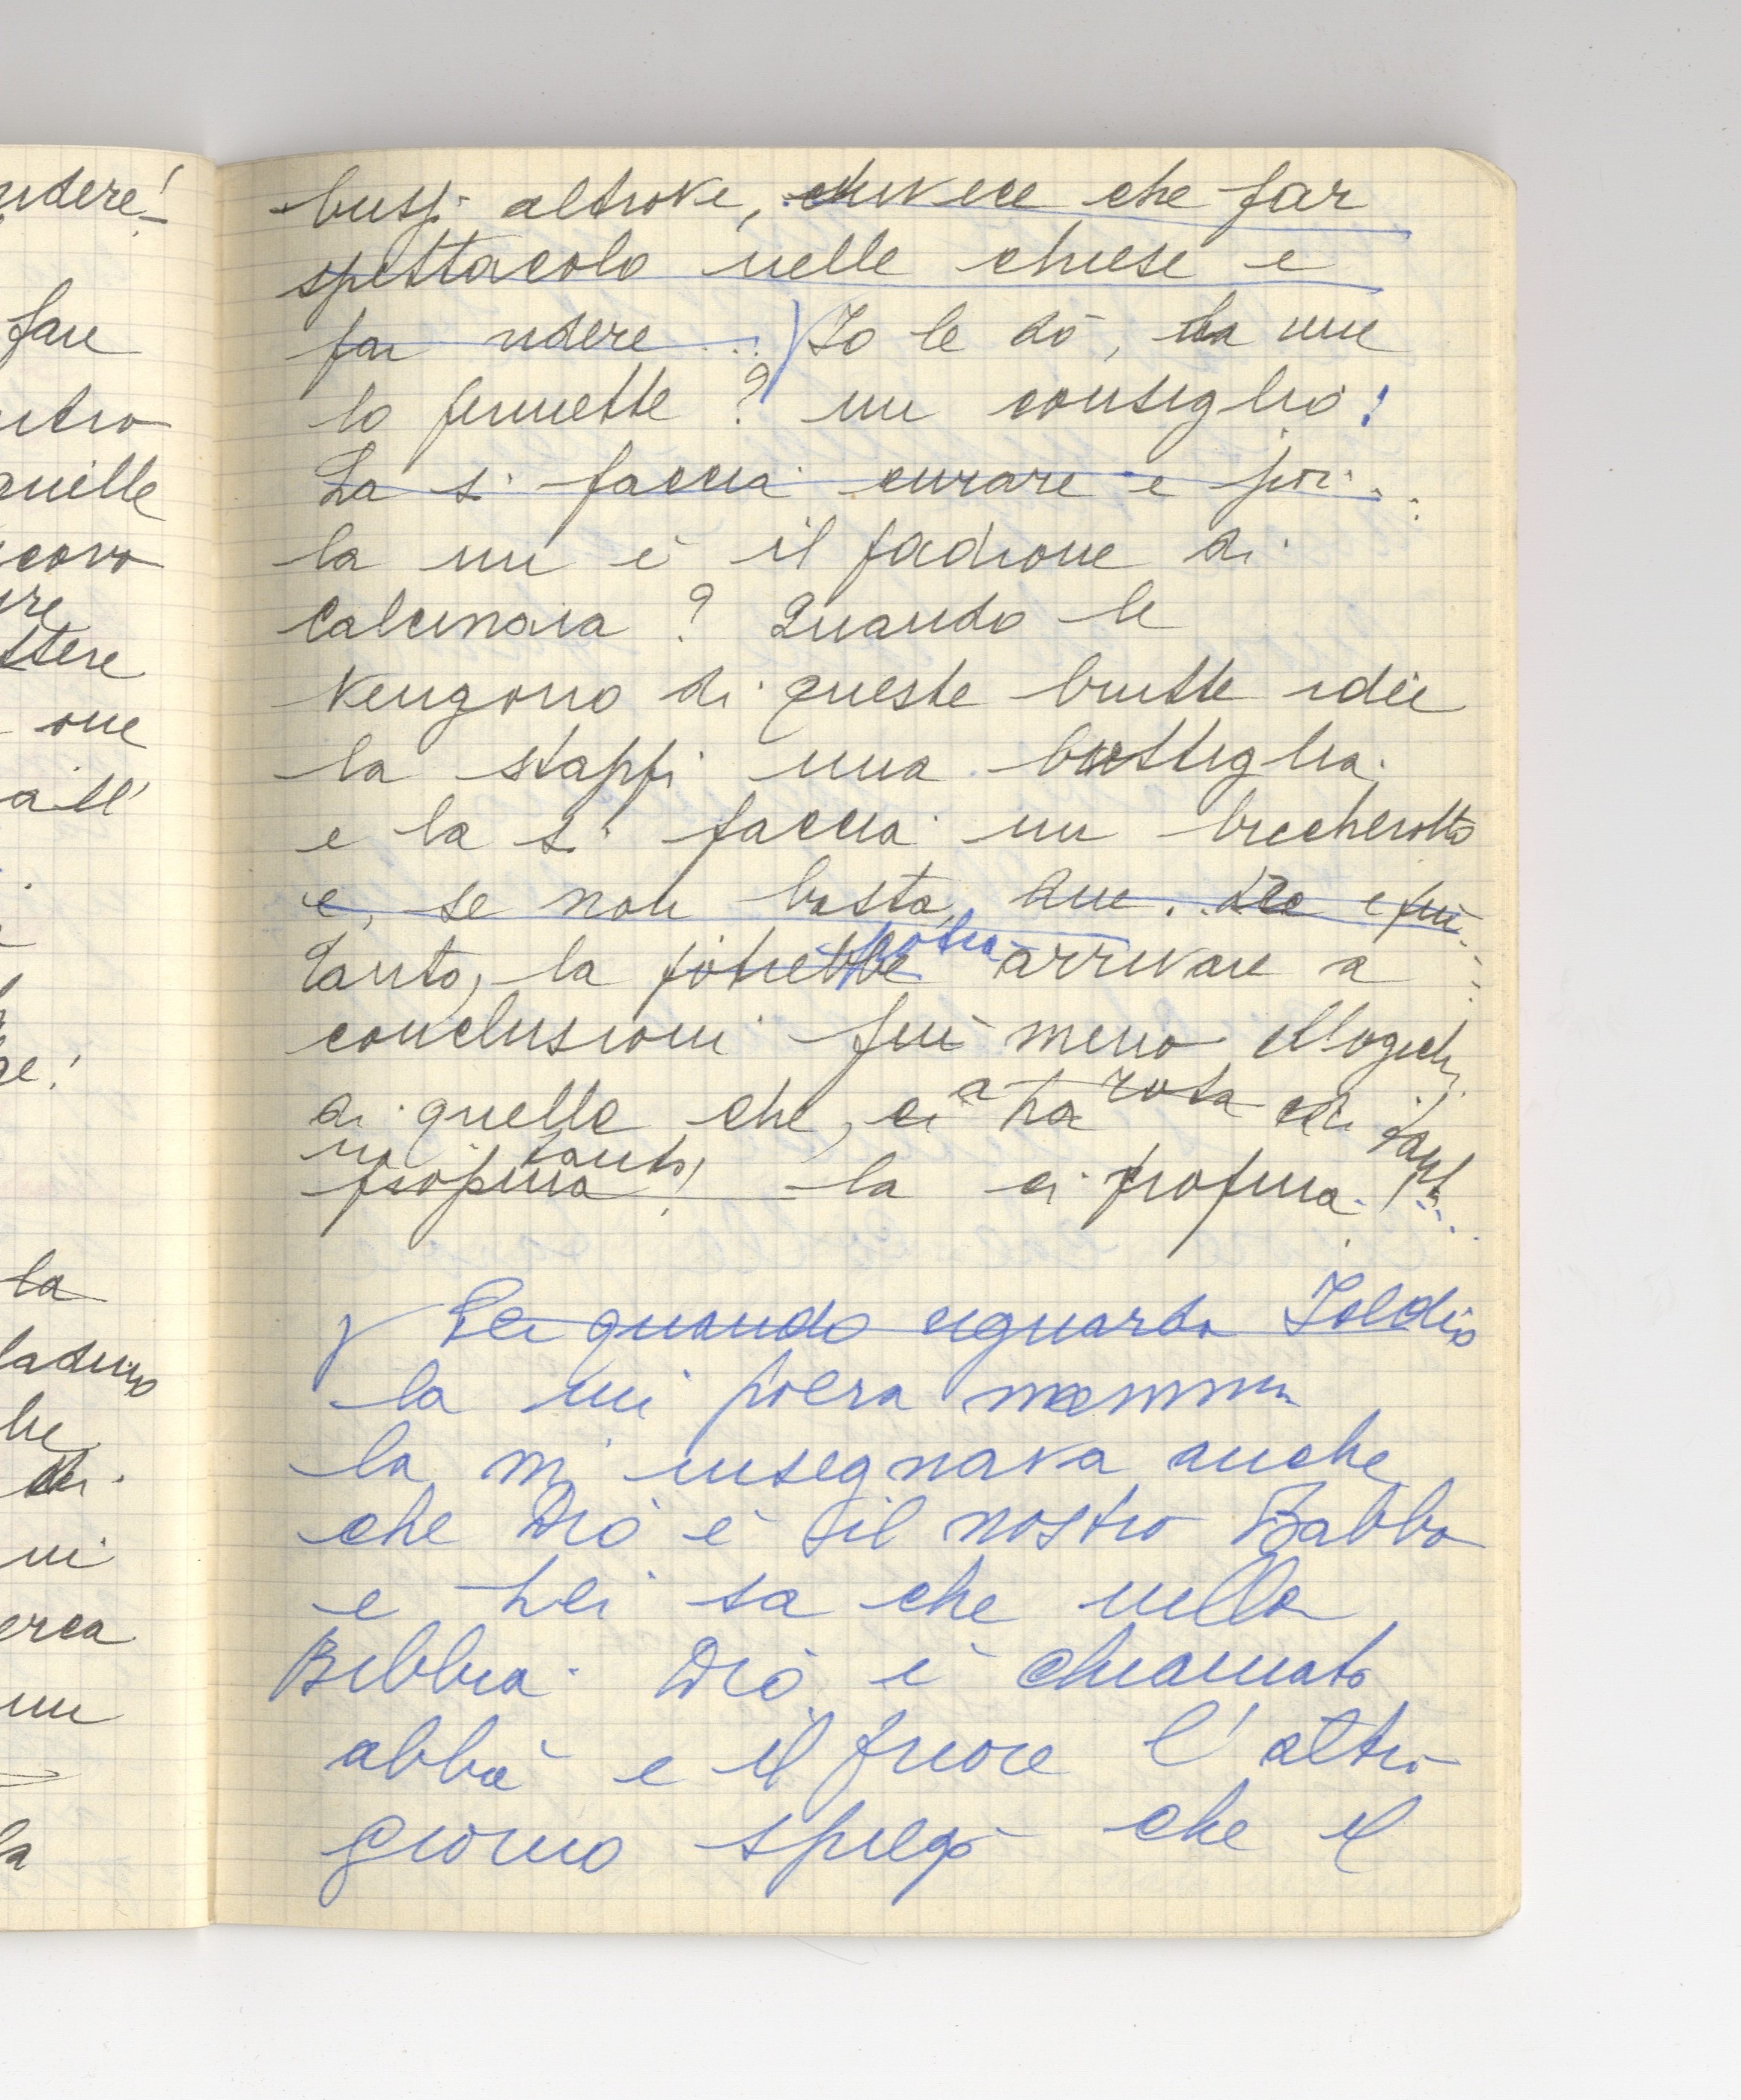 bussi altrove, invece che far
spettacolo nelle chiese e
far ridere... Io le dò, la me
lo permette? un consiglio:
La si faccia curare e poi...
la un è il padrone di
Calcinaia? Quando le
vengono di queste brutte idee
la stappi una bottiglia
e la si faccia un bicchierotto
e, se non basta, due. e più...
Tanto, la potrebbe potrà arrivare a
conclusioni più meno illogiche
di quelle che, ci
propina! tanto la ci propina!...
quando riguarda Iddio
la mi poera mamma
la mi insegnava anche
che Dio è il nostro Babbo
e Lei sa che nella
Bibbia Dio è chiamato
abbà e il priore l'altro
giorno spiegò che il
udere!
fare
ntro
quille
covo
ure
ttere
one
all'
la
ladino
he
di
ui
erca
un
la